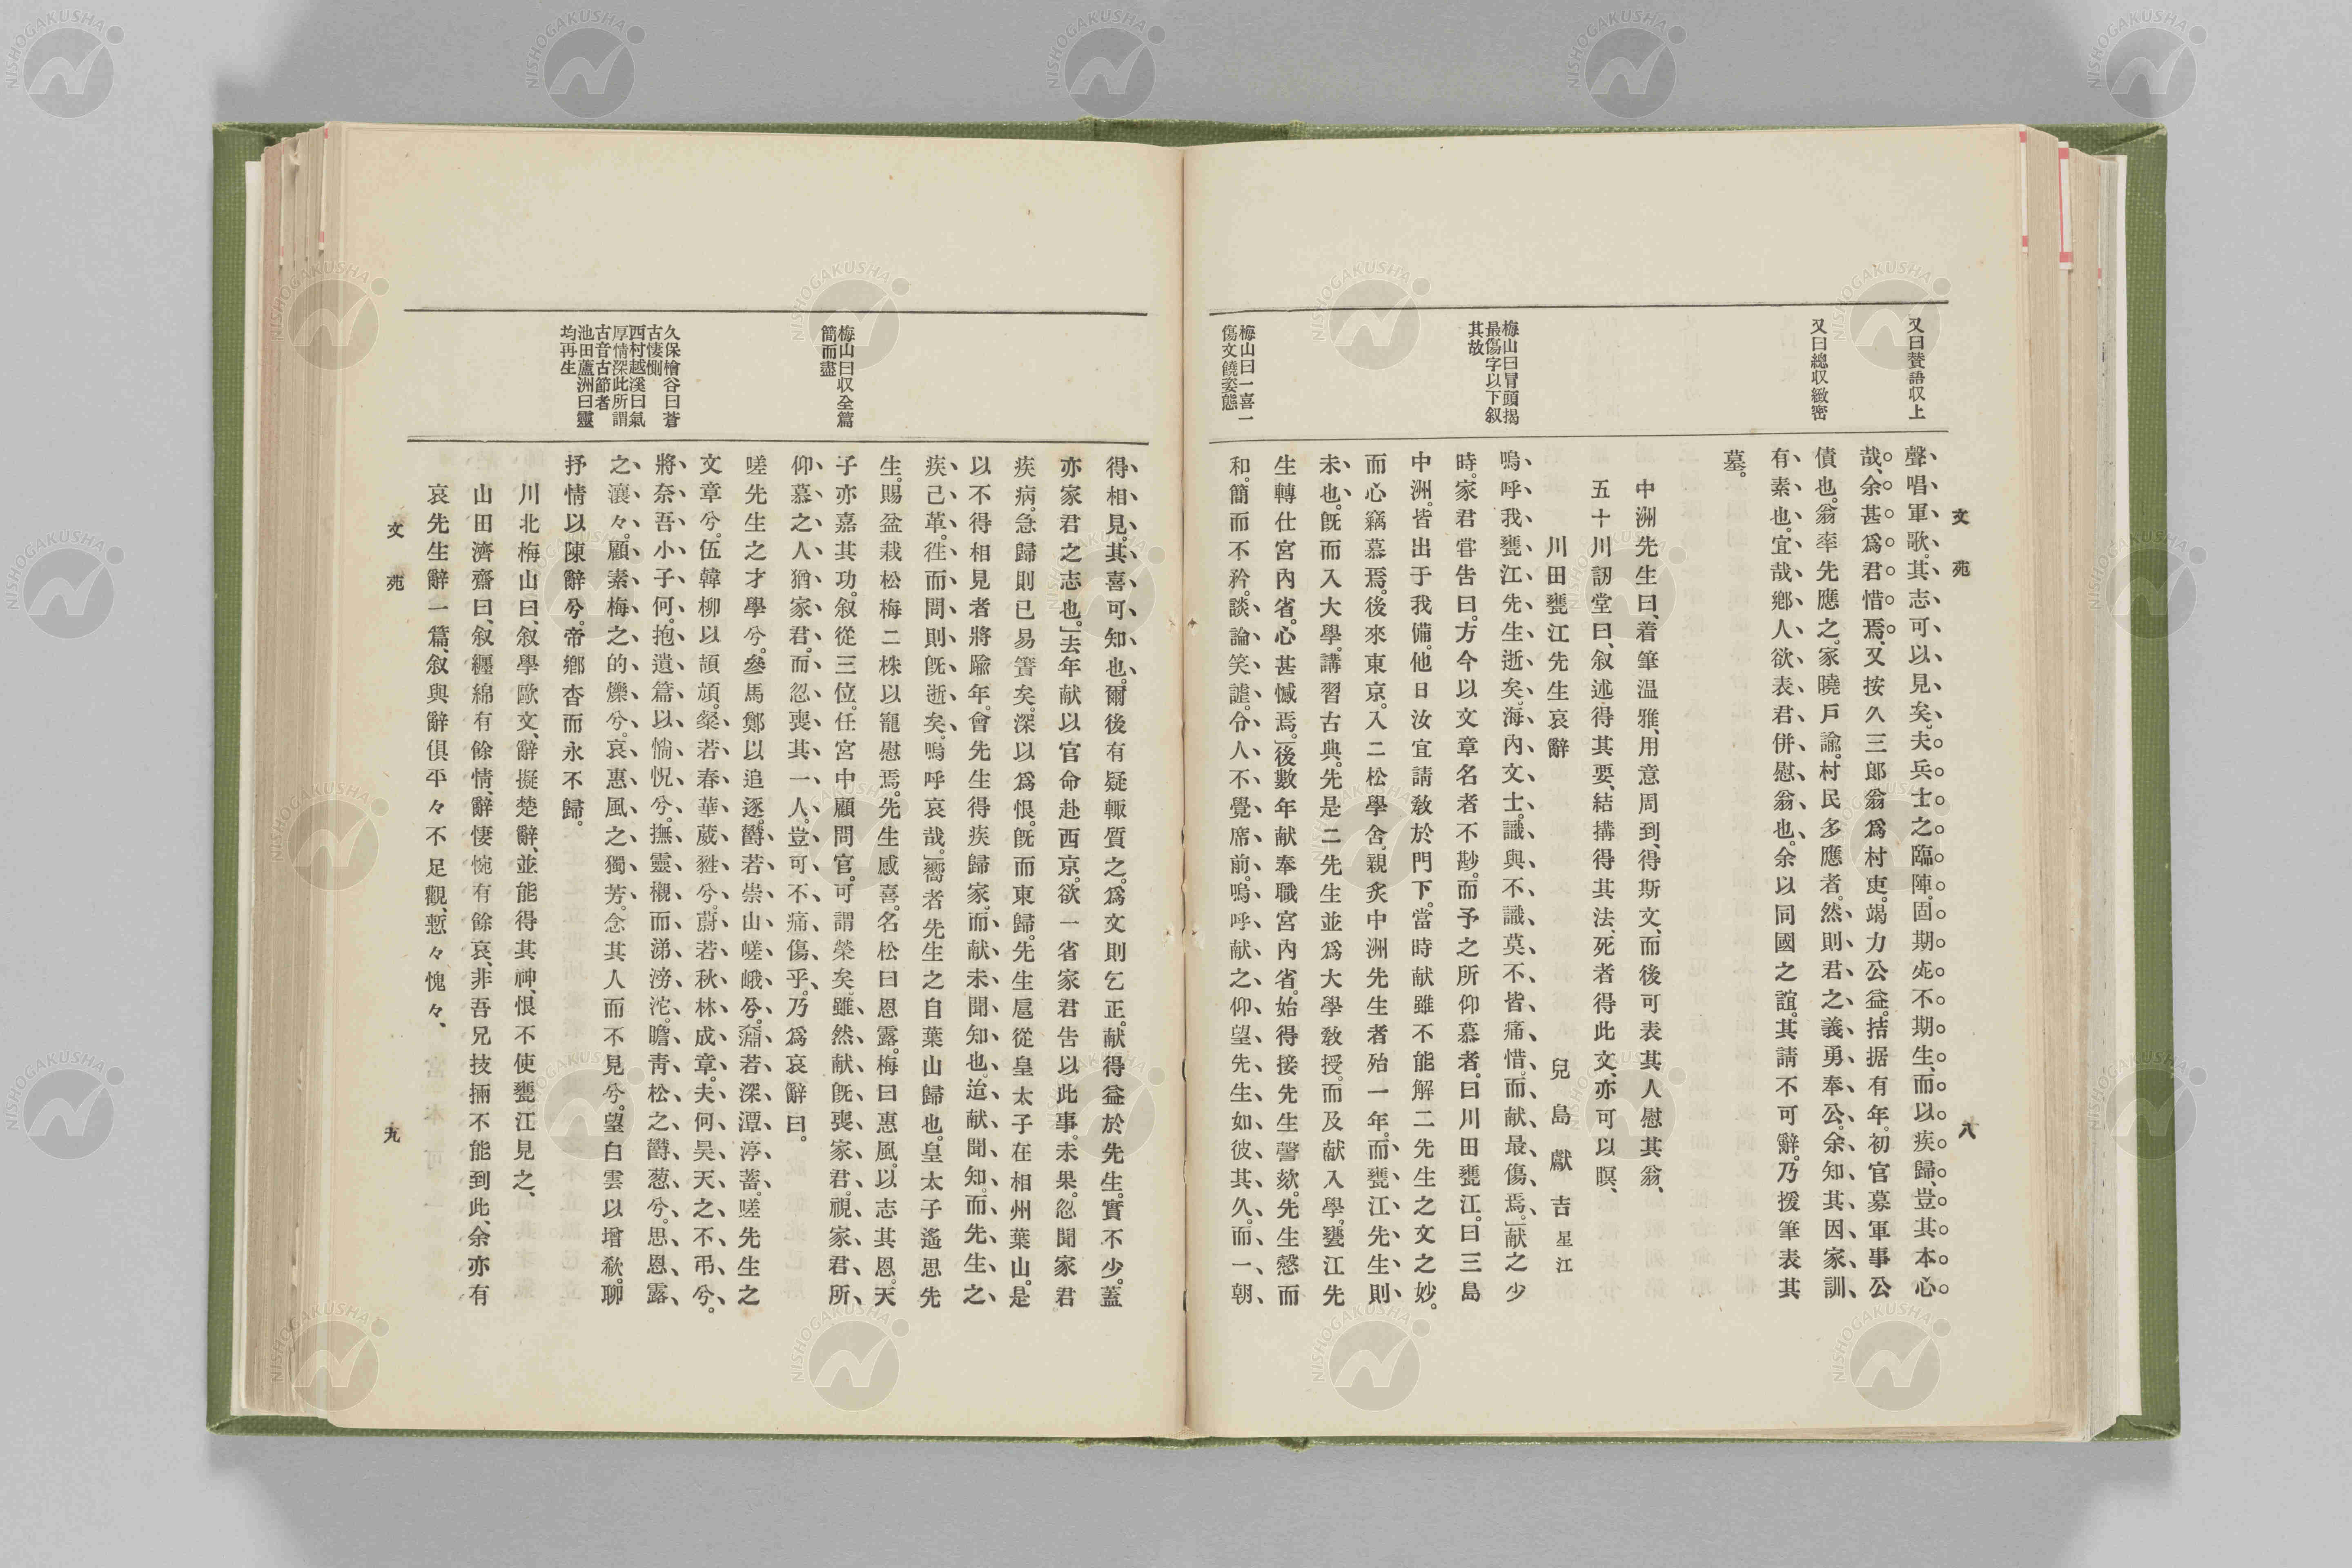 文苑
八
又曰賛語収上
又曰總収緻密
梅山曰冒頭揭
最傷字以下叙
其故
梅山曰一喜一
傷文饒姿態
聲唱軍歌其志可以見矣夫兵士之臨陣固期死不期生而以疾歸豈其本心
哉余甚爲君惜焉又按久三郎翁爲村吏竭力公益拮据有年初官募軍事公
債也翁率先應之家曉戶諭村民多應者然則君之義勇奉公余知其因家訓
有素也宜哉鄕人欲表君併慰翁也余以同國之誼其請不可辭乃援筆表其
墓。
中洲先生曰、着筆温雅、用意周到、得斯文、而後可表其人慰其翁、
五十川訒堂曰、叙述得其要、結搆得其法、死者得此文、亦可以瞑、
川田甕江先生哀辭
兒島獻吉 星江
嗚呼我甕江先生逝矣海內文士識與不識莫不皆痛惜而献最傷焉」献之少
時。家君甞吿曰。方今以文章名者不尠。而予之所仰慕者。曰川田甕江。曰三島
中洲。皆出于我備。他日汝宜請敎於門下。當時献雖不能解二先生之文之妙。
而心竊慕焉。後來東京。入二松學舍。親炙中洲先生者殆一年。而甕江先生則
未也。旣而入大學。講習古典。先是二先生並爲大學敎授。而及献入學。甕江先
生轉仕宮內省。心甚憾焉。」後數年献奉職宮內省。始得接先生謦欬。先生慇而
和。簡而不矜。談論笑謔。令人不覺席前。嗚呼献之仰望先生如彼其久。而一朝
梅山曰収全篇
簡而盡
久保檜谷曰蒼
古悽惻
西村越溪曰氣
厚情深此所謂
古音古節者
池田蘆洲曰靈
均再生
得相見。其喜可知也。爾後有疑輙質之。爲文則乞正。献得益於先生。實不少。蓋
亦家君之志也。」去年献以官命赴西京。欲一省家君吿以此事。未果。忽聞家君
疾病。急歸則已易簀矣。深以爲恨。旣而東歸。先生扈從皇太子在相州葉山。是
以不得相見者將踰年。會先生得疾歸家。而献未聞知也。迨献聞知。而先生之
疾已革。徃而問則旣逝矣。嗚呼哀哉。」嚮者先生之自葉山歸也。皇太子遙思先
生。賜盆栽松梅二株以寵慰焉。先生感喜。名松曰恩露。梅曰惠風。以志其恩。天
子亦嘉其功。叙從三位。任宮中顧問官。可謂榮矣。雖然献旣喪家君。視家君所
仰慕之人猶家君。而忍喪其一人。豈可不痛傷乎。乃爲哀辭曰。
嗟先生之才學兮。參馬鄭以追逐。欝若崇山嵯峨兮。瀰若深潭渟蓄。嗟先生之
文章兮。伍韓柳以頡頏。粲若春華葳甤兮。蔚若秋林成章。夫何昊天之不弔兮。
將奈吾小子何。抱遺篇以惝怳兮。撫靈櫬而涕滂沱。瞻靑松之欝葱兮。思恩露
之瀼々。顧素梅之的爍兮。哀惠風之獨芳。念其人而不見兮。望白雲以增欷。聊
抒情以陳辭兮。帝鄕杳而永不歸。
川北梅山曰、叙學歐文、辭擬楚辭、並能得其神、恨不使甕江見之、
山田濟齋曰、叙纒綿有餘情、辭悽惋有餘哀、非吾兄技倆不能到此、余亦有
哀先生辭一篇、叙與辭俱平々不足觀、慙々愧々、
文苑
九